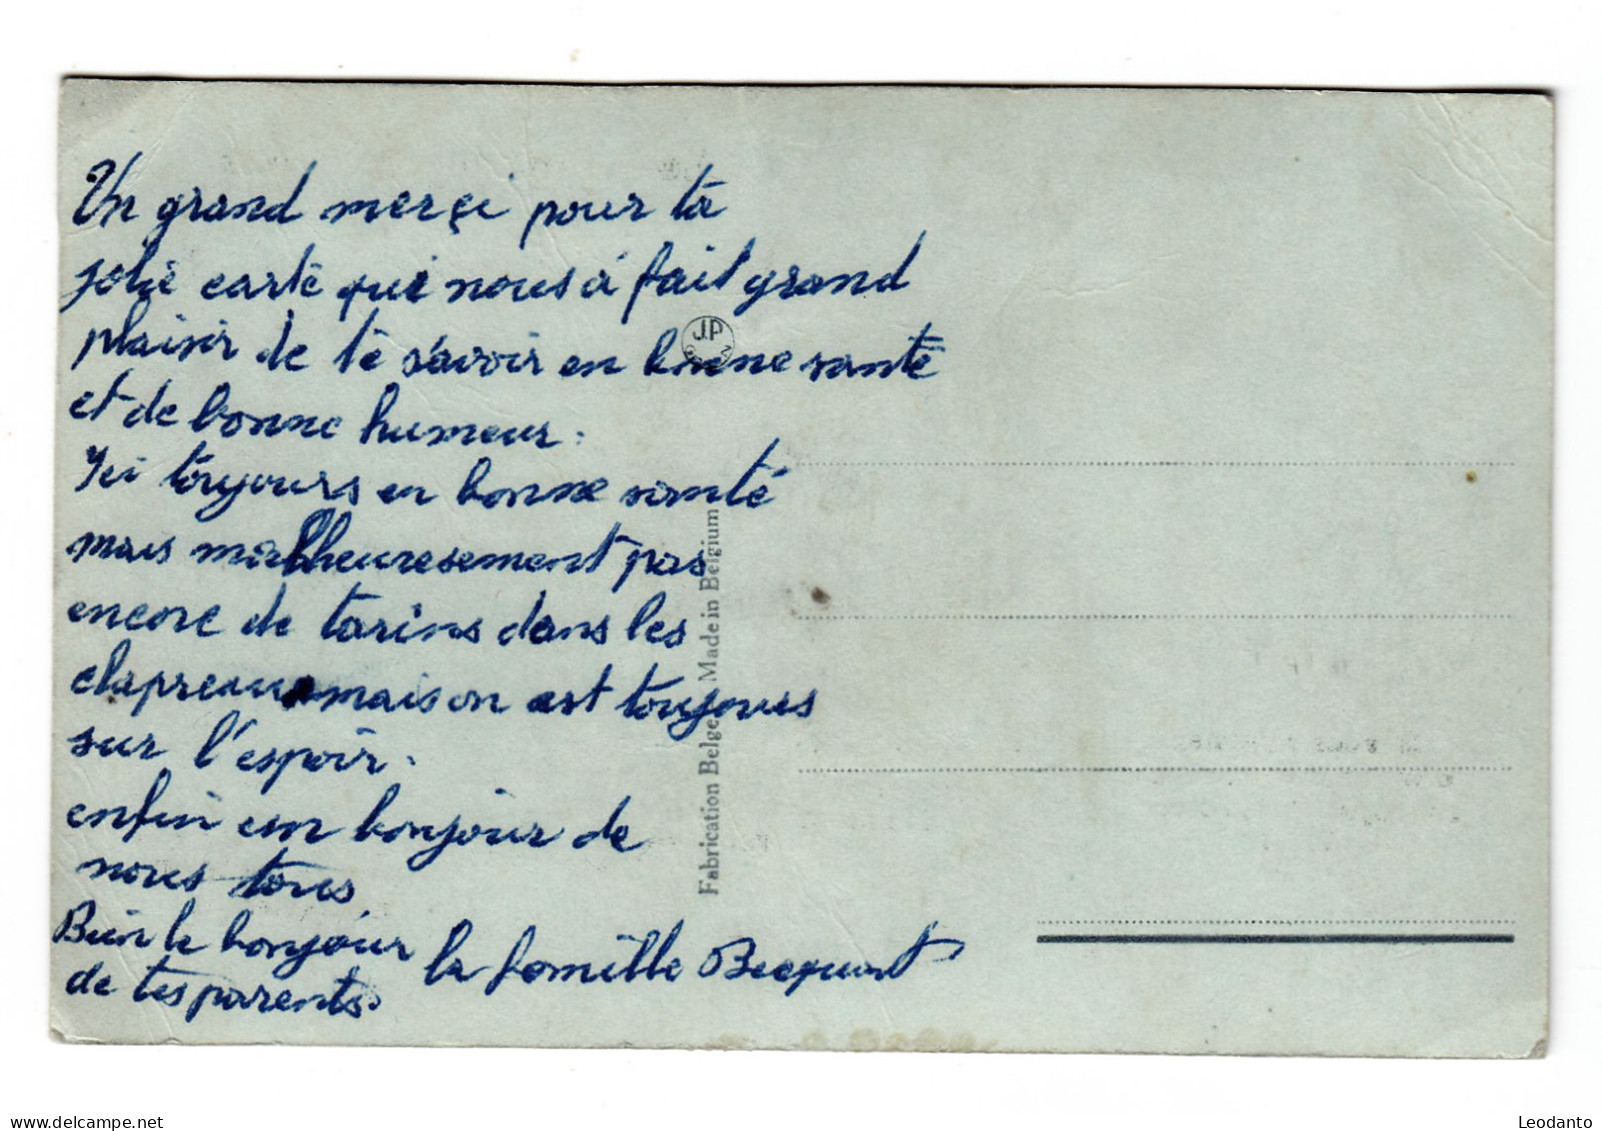 Un grand merçi pour ta
jolie carte qui nous à fait grand
plaisir de te s'avoir en bonne santé
et de bonne humeur.
Ici toujours en bonne santé
mais malheuresement pas
encore de tarins dans les
clapreaux maison est toujours
sur l'espoir.
enfin un bonjour de
nous tous
Bien le bonjour
de tes parents.
la famille Becquart
JP
Fabrication Belge Made in Belgium
delcampe.net
Leodanto